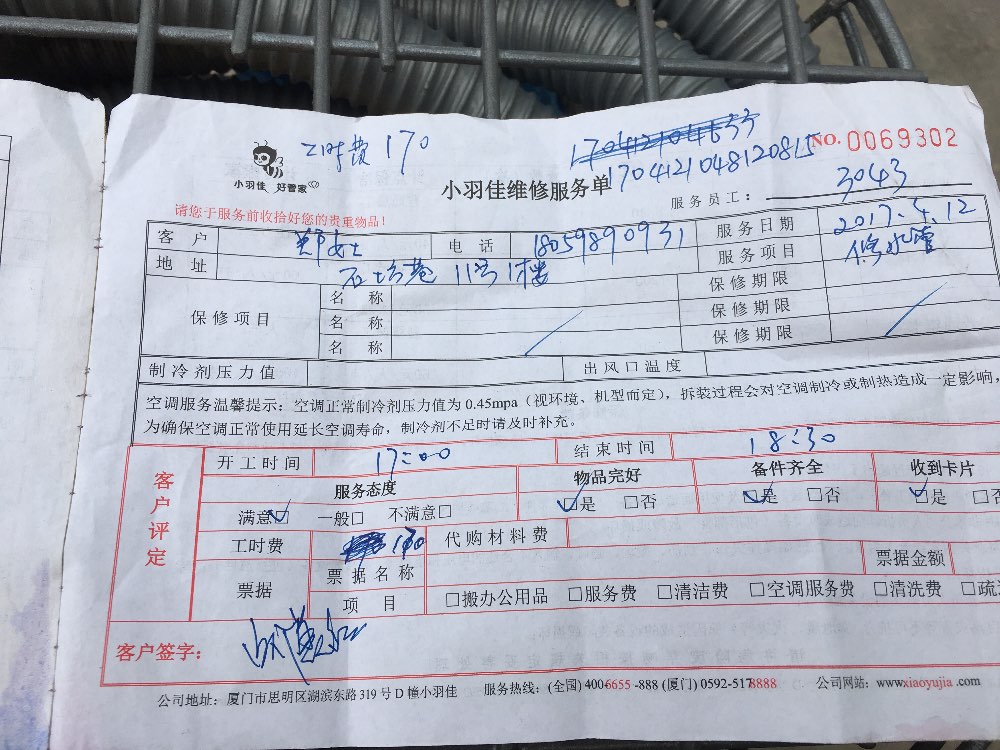 工时费 170
1704121048120815
NO. 0069302
小羽佳 好管家
小羽佳维修服务单
服务员工: 3043
请您于服务前收拾好您的贵重物品!
客户 郑女士 电话 18059890931 服务日期 2017.4.12
地址 石坊巷 11号1楼 服务项目 修水管
保修项目 名称 保修期限
名称 保修期限
名称 保修期限
制冷剂压力值 出风口温度
空调服务温馨提示: 空调正常制冷剂压力值为 0.45mpa (视环境、机型而定), 拆装过程会对空调制冷或制热造成一定影响,
为确保空调正常使用延长空调寿命, 制冷剂不足时请及时补充。
客户评定
开工时间 17:00 结束时间 18:30
服务态度 物品完好 备件齐全 收到卡片
满意☑ 一般□ 不满意□ ☑是 □否 ☑是 □否 ☑是 □否
工时费 170 代购材料费
票据 票据名称 票据金额
项目 □搬办公用品 □服务费 □清洁费 □空调服务费 □清洗费 □疏
客户签字:
公司地址: 厦门市思明区湖滨东路 319 号 D 幢小羽佳 服务热线: (全国) 400-6655-888 (厦门) 0592-5178888 公司网站: www.xiaoyujia.com